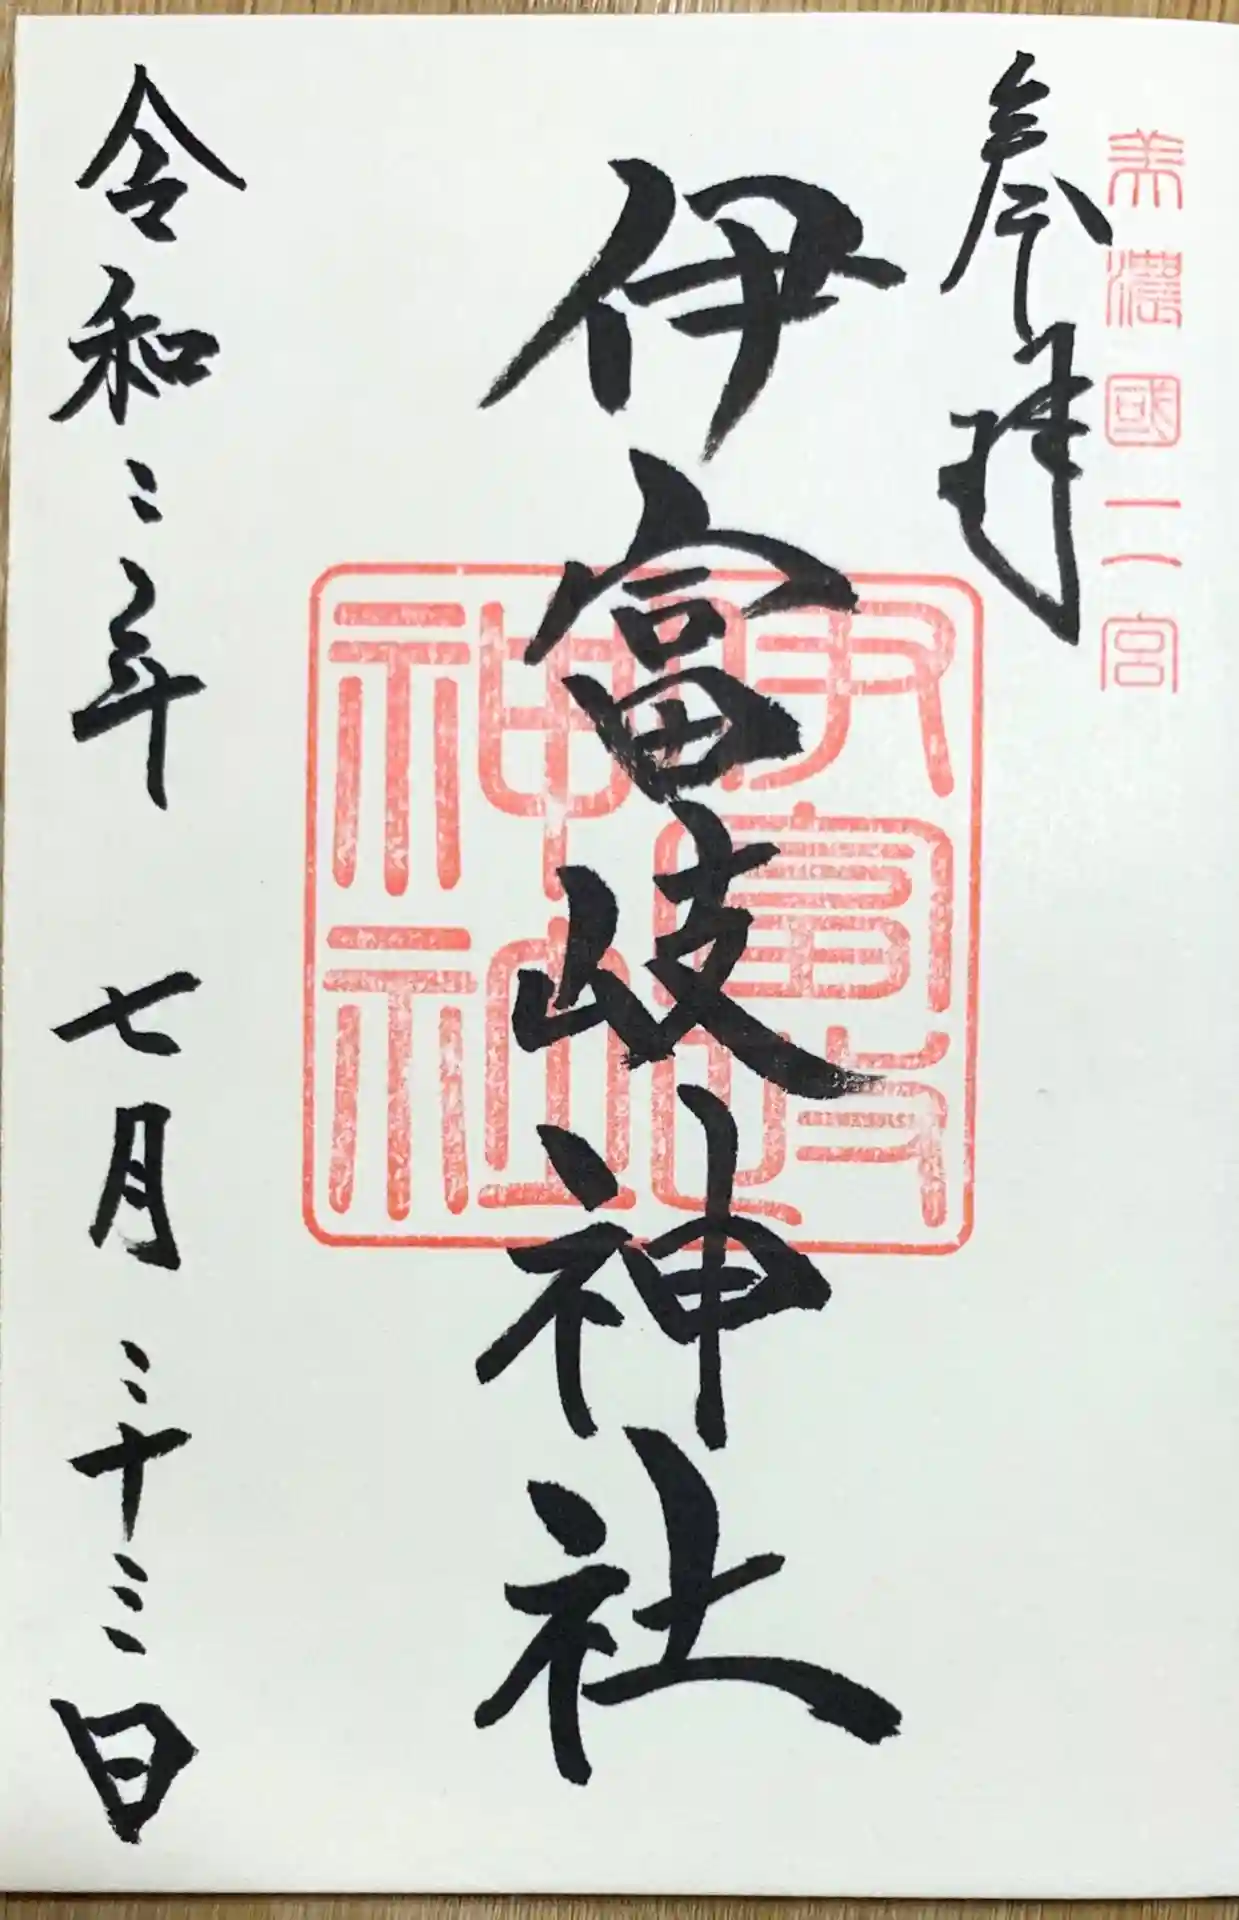 美濃國二宮
参拝
伊富岐神社
伊富岐
神社
令和二年七月二十三日